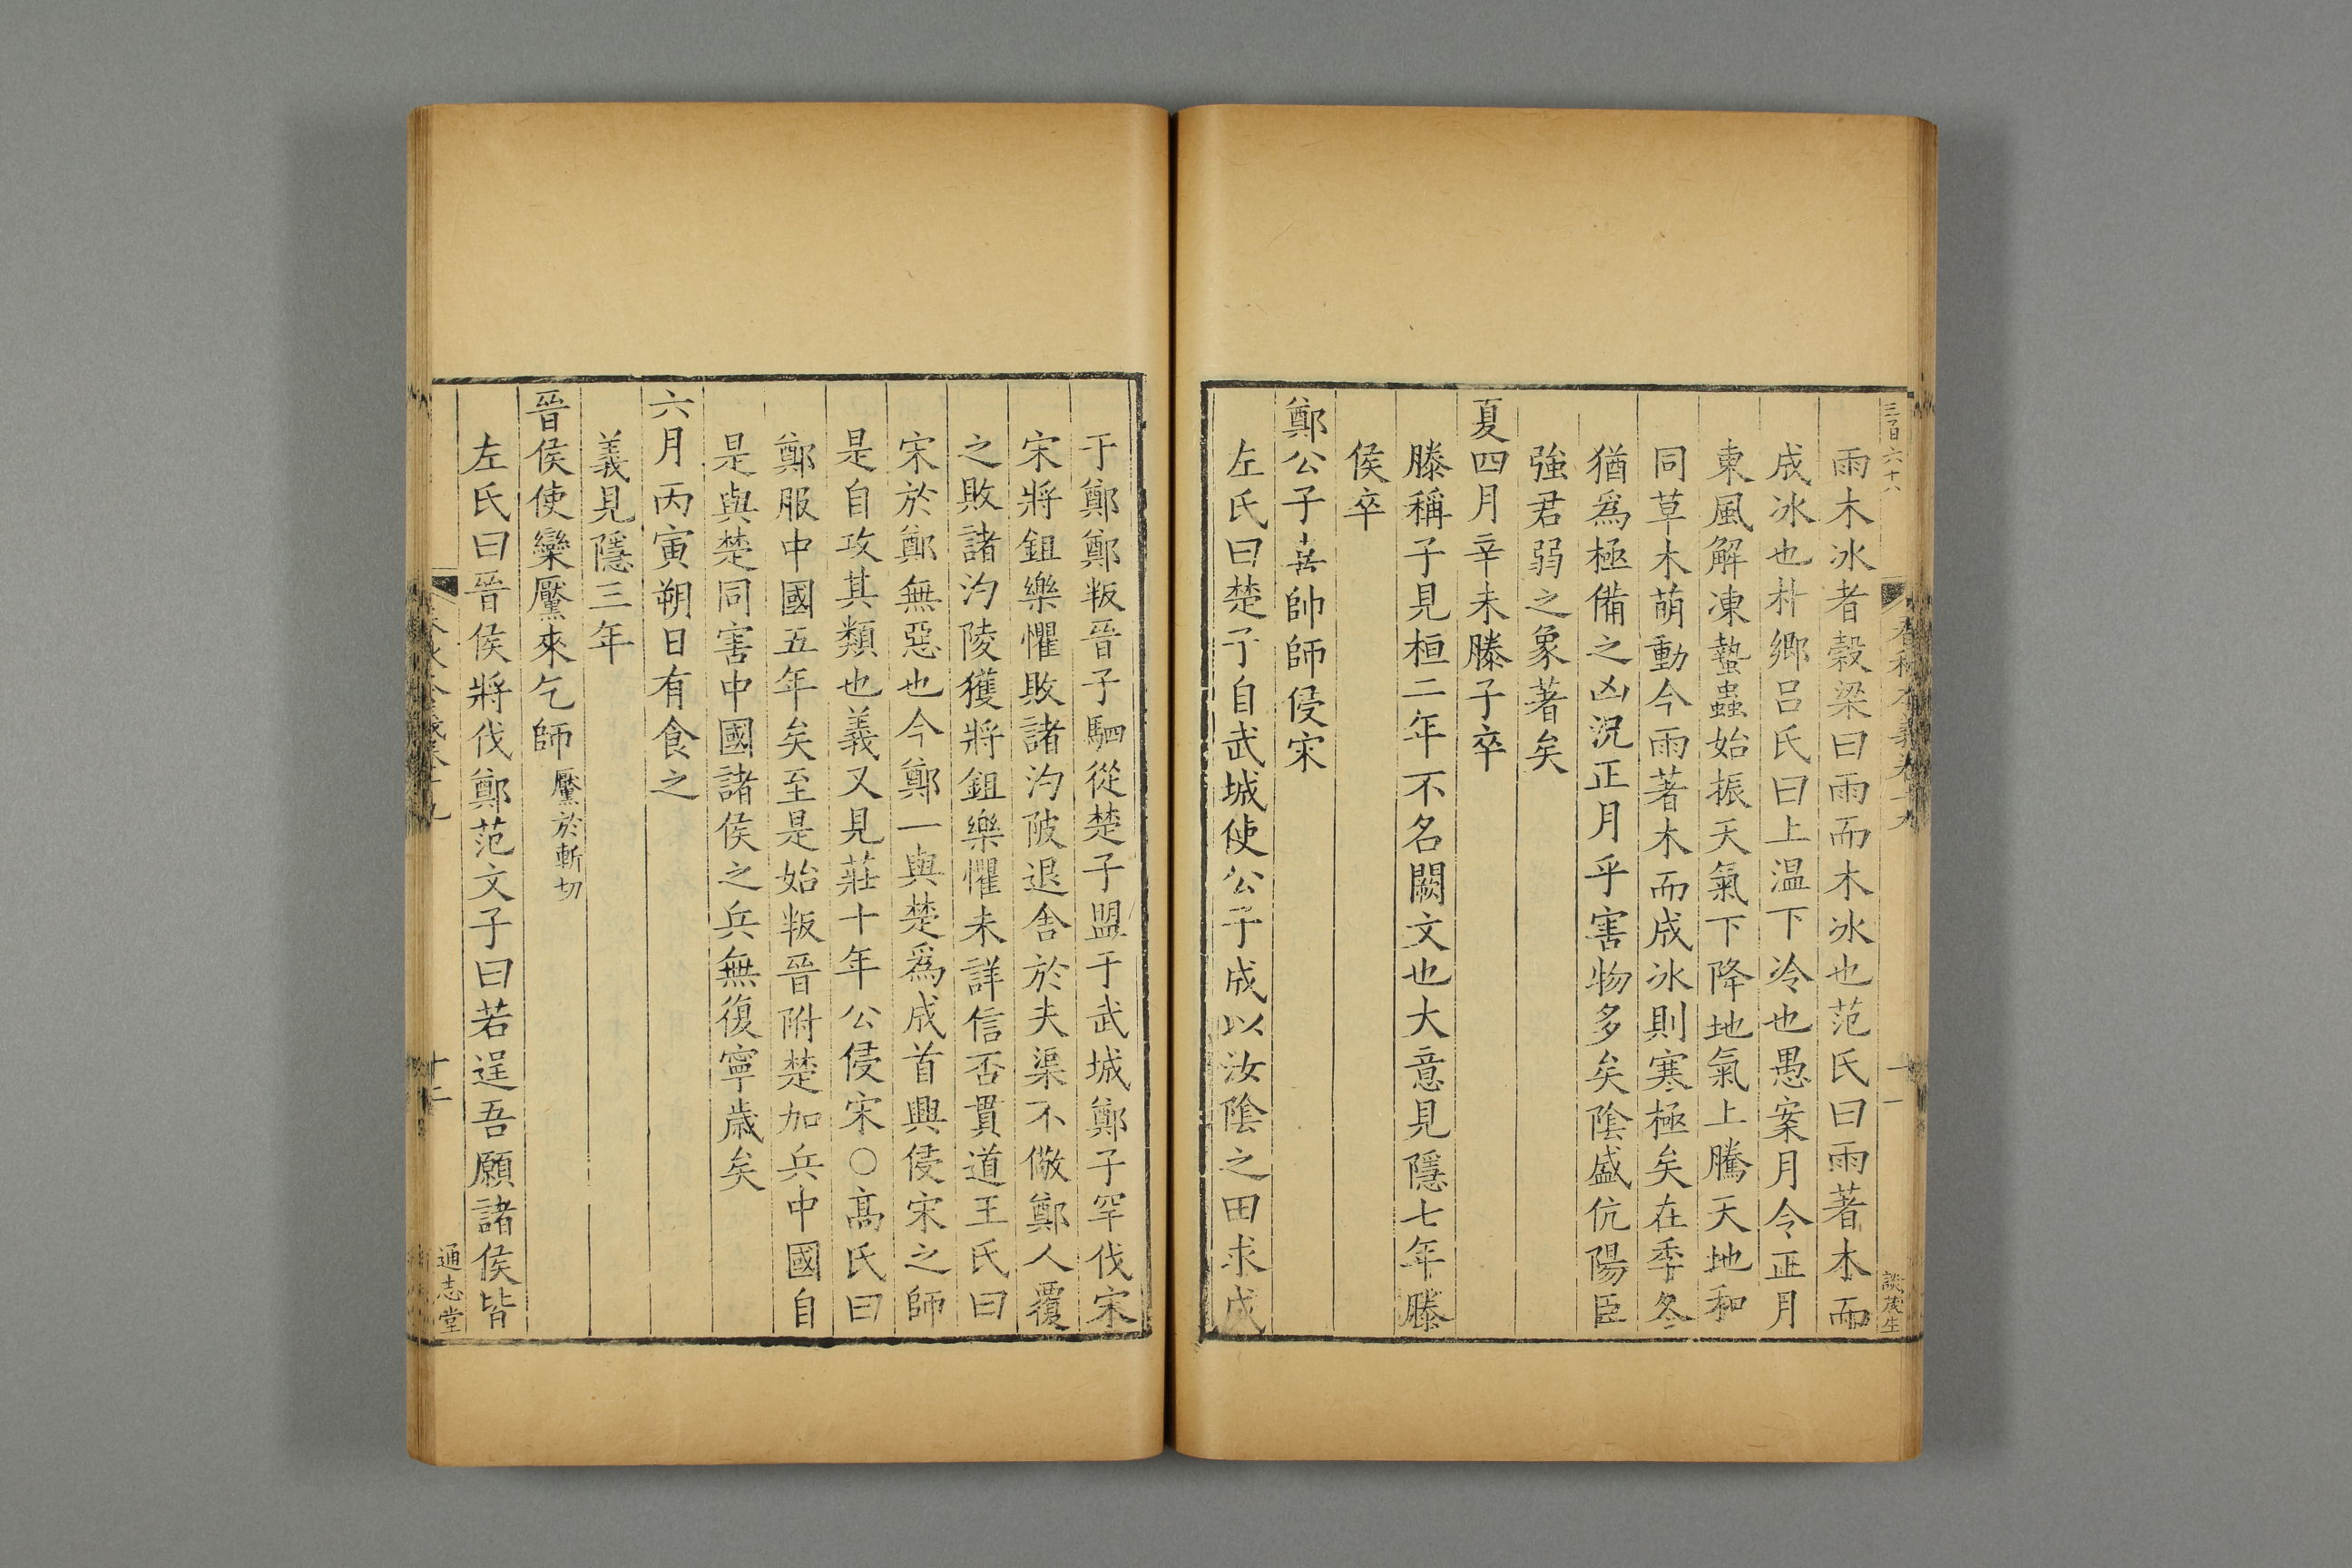 三百六十八
春秋本義卷十九
十一
談茂生
雨木冰者榖梁曰雨而木冰也范氏曰雨著木而
成冰也朴鄉呂氏曰上温下冷也愚案月令正月
東風解凍蟄蟲始振天氣下降地氣上騰天地和
同草木萌動今雨著木而成冰則寒極矣在季冬
猶爲極備之凶況正月乎害物多矣陰盛伉陽臣
強君弱之象著矣
夏四月辛未滕子卒
滕稱子見桓二年不名闕文也大意見隱七年滕
侯卒
鄭公子喜帥師侵宋
左氏曰楚子自武城使公子成以汝陰之田求成
于鄭鄭叛晉子駟從楚子盟于武城鄭子罕伐宋
宋將鉏樂懼敗諸汋陂退舍於夫渠不儆鄭人覆
之敗諸汋陵獲將鉏樂懼未詳信否貫道王氏曰
宋於鄭無惡也今鄭一與楚爲成首興侵宋之師
是自攻其類也義又見莊十年公侵宋○髙氏曰
鄭服中國五年矣至是始叛晉附楚加兵中國自
是與楚同害中國諸侯之兵無復寧歲矣
六月丙寅朔日有食之
義見隱三年
晉侯使欒黶來乞師黶於斬切
左氏曰晉侯將伐鄭范文子曰若逞吾願諸侯皆
十二
通志堂